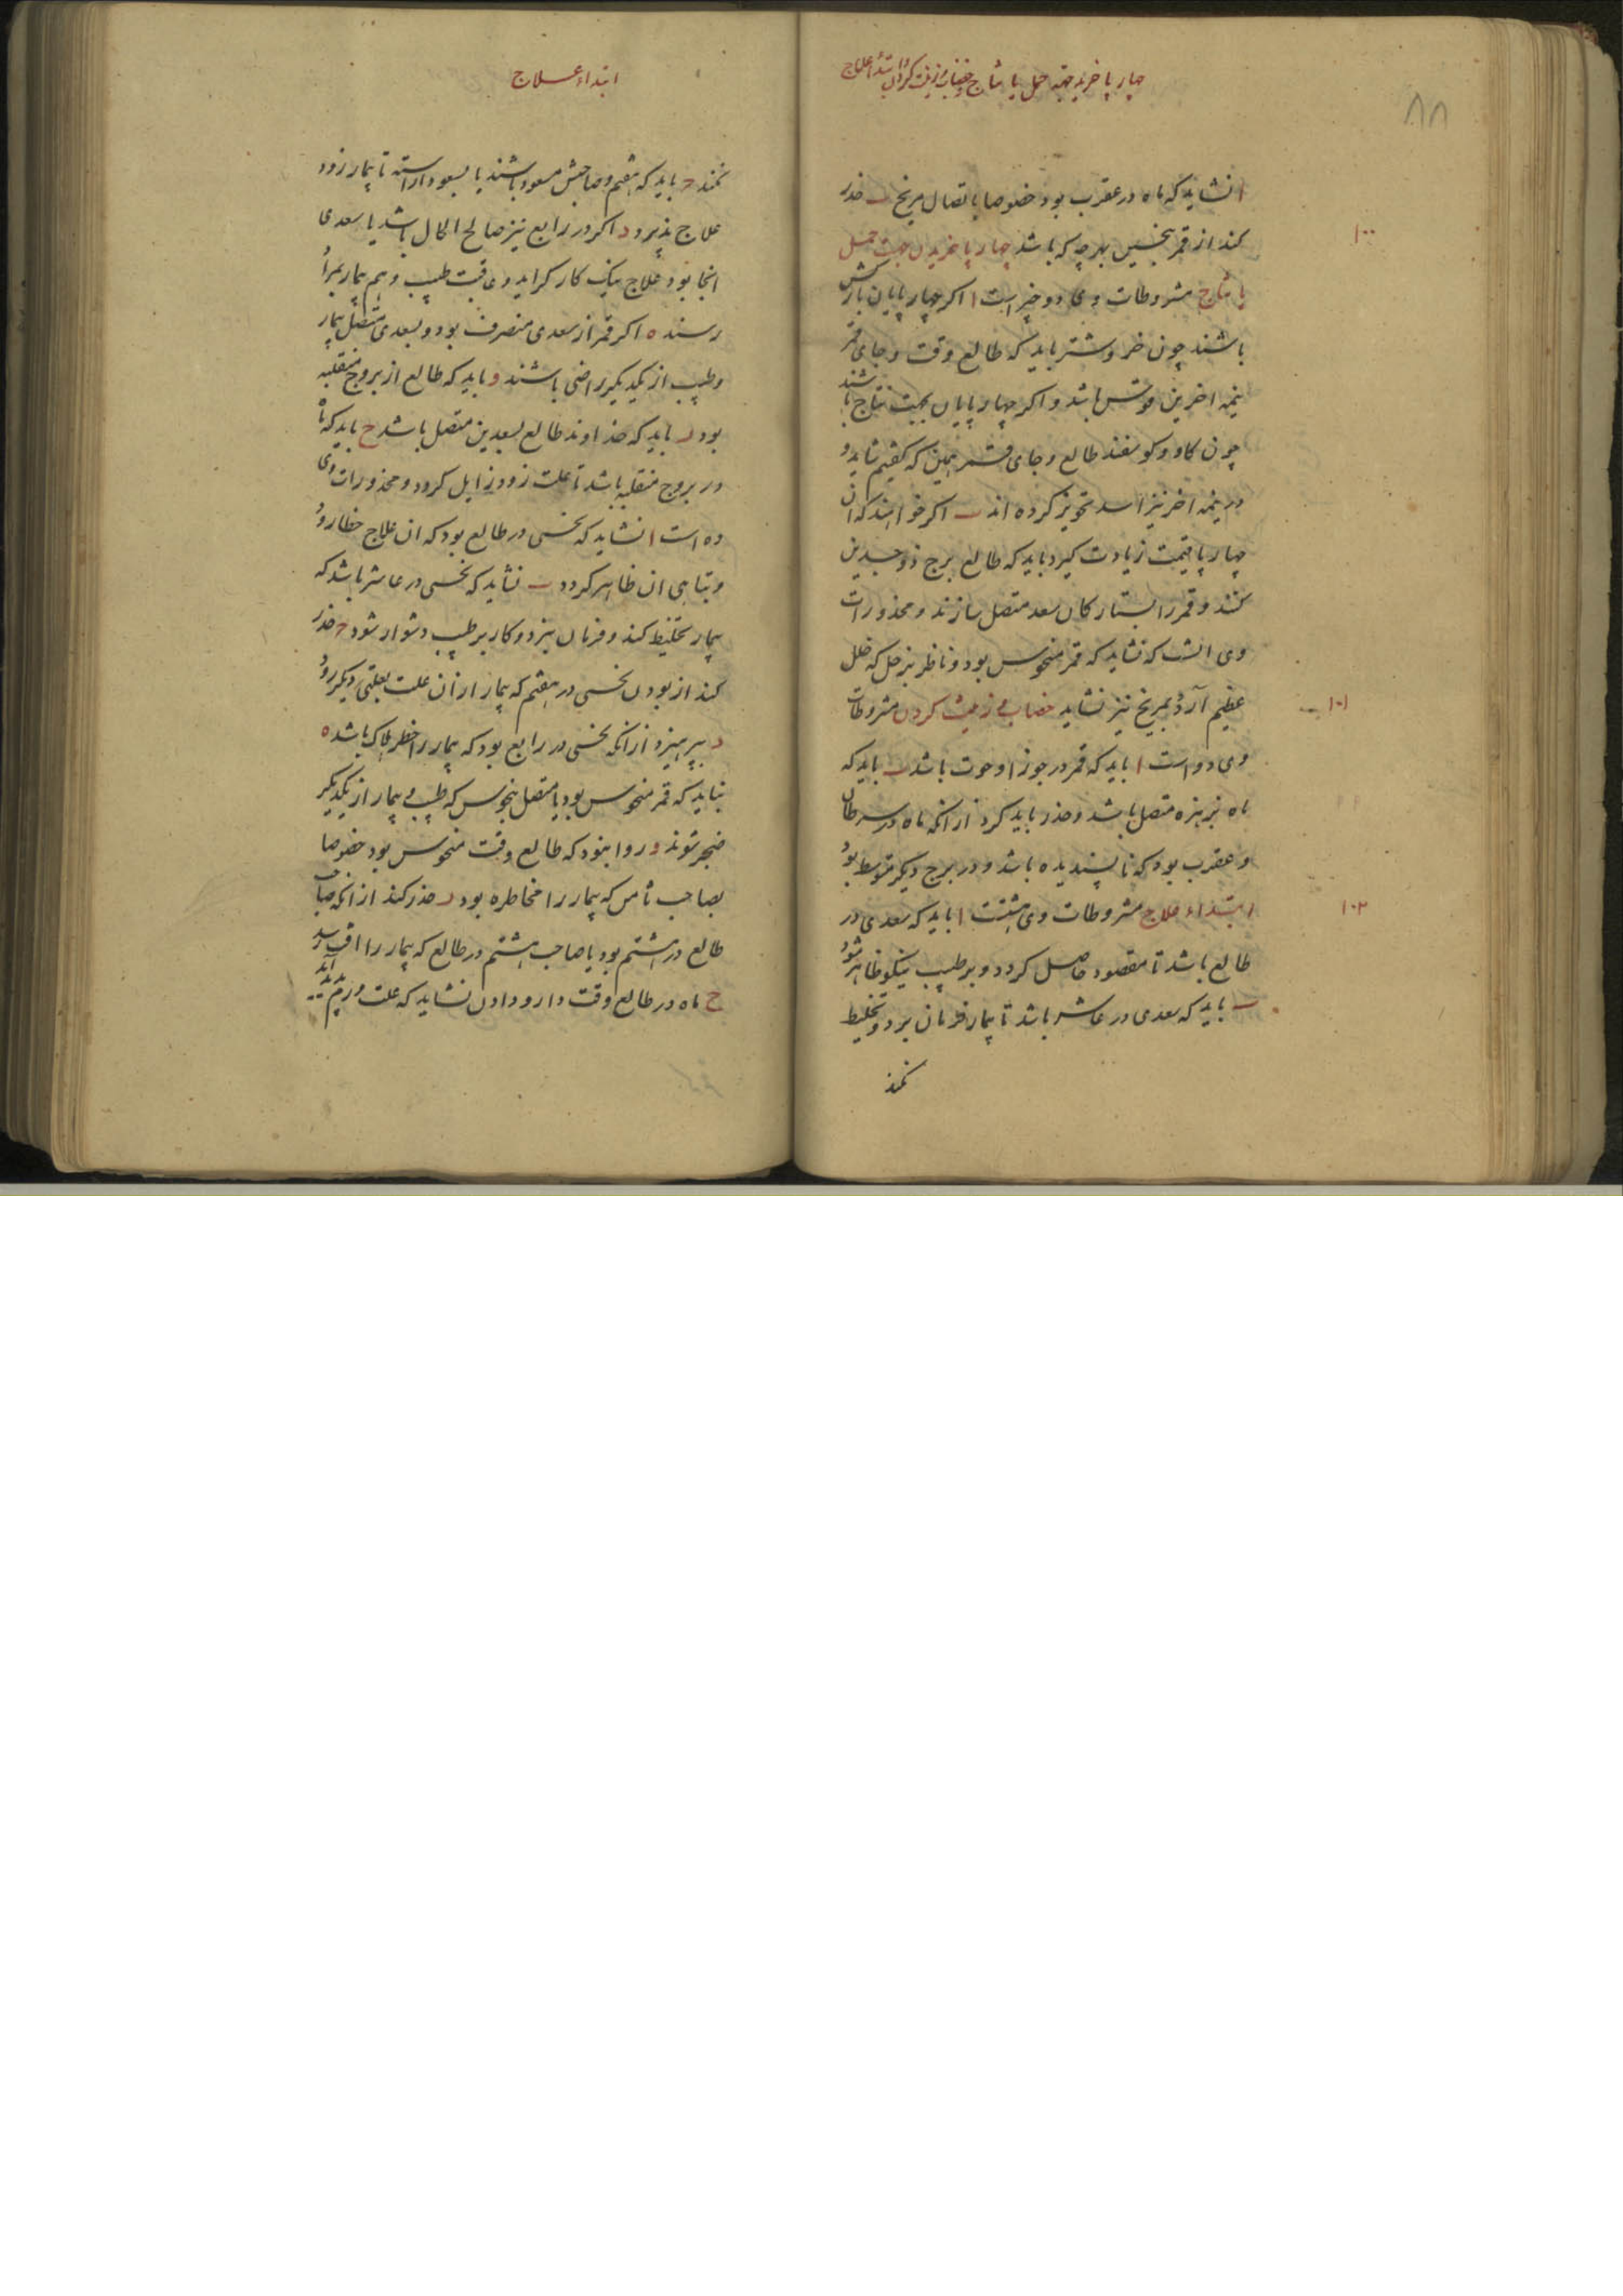 چهار پا خریدن جهة حمل یا نتاج خضاب و زینت کردن ابتداء علاج
۸۸
ا نشاید که ماه در عقرب بود خصوصا باتصال مریخ ب حذر
۱۰۰
کند از قمر بنحسین بهرچه که باشد چهار پا خریدن جهت حمل
یا نتاج مشروطات وی دو چیز است ا اکر چهار پایان بارکش
باشند چون خر و شتر باید که طالع وقت و جای قمر
نیمه اخرین قوس باشد و اکر چهار پایان بجهت نتاج باشند
چون کاو و کوسفند طالع و جای قمر همین که کفتیم شاید و
در نیمه اخر نیز اسد تجویز کرده اند ب اکر خواهند که ان
چهار پا قیمت زیادت کیرد باید که طالع برج ذو جسدین
کنند و قمر را بستارکان سعد متصل سازند و محذورات
وی انست که نشاید که قمر منحوس بود و ناظر بزحل که خلل
عظیم آرد و بمریخ نیز نشاید خضاب و زینت کردن مشروطات
۱۰۱
وی دو است ا باید که قمر در جوزا و حوت باشد ب باید که
ماه بزهره متصل باشد و حذر باید کرد از انکه ماه در سرطان
و عقرب بود که ناپسندیده باشد و در برج دیکر متوسط بود
ابتداء علاج مشروطات وی هشتست ا باید که سعدی در
۱۰۲
طالع باشد تا مقصود حاصل کردد و بر طبیب نیکو ظاهر شود
ب باید که سعدی در عاشر باشد تا بیمار فرمان برد و تخلیط
نکند
ابتداء علاج
نکند ج باید که هفتم و صاحبش مسعود باشند یا بسعود اراسته تا بیمار زود
علاج پذیرد د اکر در رابع نیز صالح الحال باشد یا سعدی
انجا بود علاج نیک کار کراید و عاقبت طبیب و هم بیمار بمراد
رسند ه اکر قمر از سعدی منصرف بود و بسعدی متصل بیمار
و طبیب از یکدیکر راضی باشند و باید که طالع از بروج منقلبه
بود ز باید که خداوند طالع بسعدین متصل باشد ح باید که ماه
در بروج منقلبه باشد تا علت زود زایل کردد و محذورات وی
ده است ا نشاید که نحسی در طالع بود که ان علاج خطا رود
و تباهی ان ظاهر کردد ب نشاید که نحسی در عاشر باشد که
بیمار تخلیط کند و فرمان نبرد و کار بر طبیب دشوار شود ج حذر
کند از بودن نحسی در هفتم که بیمار از ان علت بعلتی دیکر رود
د بپرهیزد از انکه نحسی در رابع بود که بیمار را خطر هلاک باشد ه
نباید که قمر منحوس بود یا متصل بنحوس که طبیب و بیمار از یکدیکر
ضجر شوند و روا نبود که طالع وقت منحوس بود خصوصا
بصاحب ثامن که بیمار را مخاطره بود ز حذر کند از انکه صاحب
طالع در هشتم بود یا صاحب هشتم در طالع که بیمار را افت رسد
ح ماه در طالع وقت دارو دادن نشاید که علت ورم پدید آید